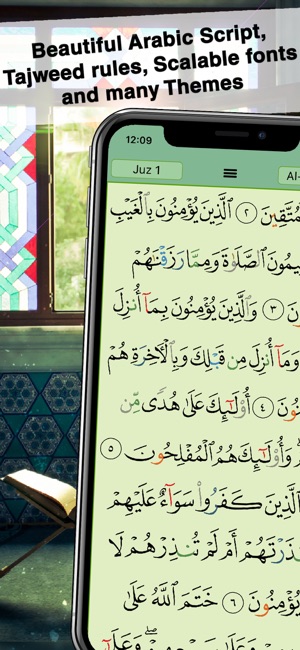 Beautiful Arabic Script,
Tajweed rules, Scalable fonts
and many Themes
12:09
Juz 1
Al-
مُتَّقِينَ ٢ ٱلَّذِينَ يُؤْمِنُونَ بِٱلْغَيْبِ
يمُونَ ٱلصَّلَوٰةَ وَمِمَّا رَزَقْنَٰهُمْ
ونَ ٣ وَٱلَّذِينَ يُؤْمِنُونَ بِمَآ أُنزِلَ
وَمَآ أُنزِلَ مِن قَبْلِكَ وَبِٱلْءَاخِرَةِ هُمْ
نُونَ ٤ أُو۟لَٰٓئِكَ عَلَىٰ هُدًى مِّن
وَأُو۟لَٰٓئِكَ هُمُ ٱلْمُفْلِحُونَ ٥
ٱلَّذِينَ كَفَرُوا۟ سَوَآءٌ عَلَيْهِمْ
نذَرْتَهُمْ أَمْ لَمْ تُنذِرْهُمْ لَا
يُؤْمِنُونَ ٦ خَتَمَ ٱللَّهُ عَلَىٰ
وَعَلَىٰ سَمْعِهِمْ ۖ وَعَلَىٰٓ